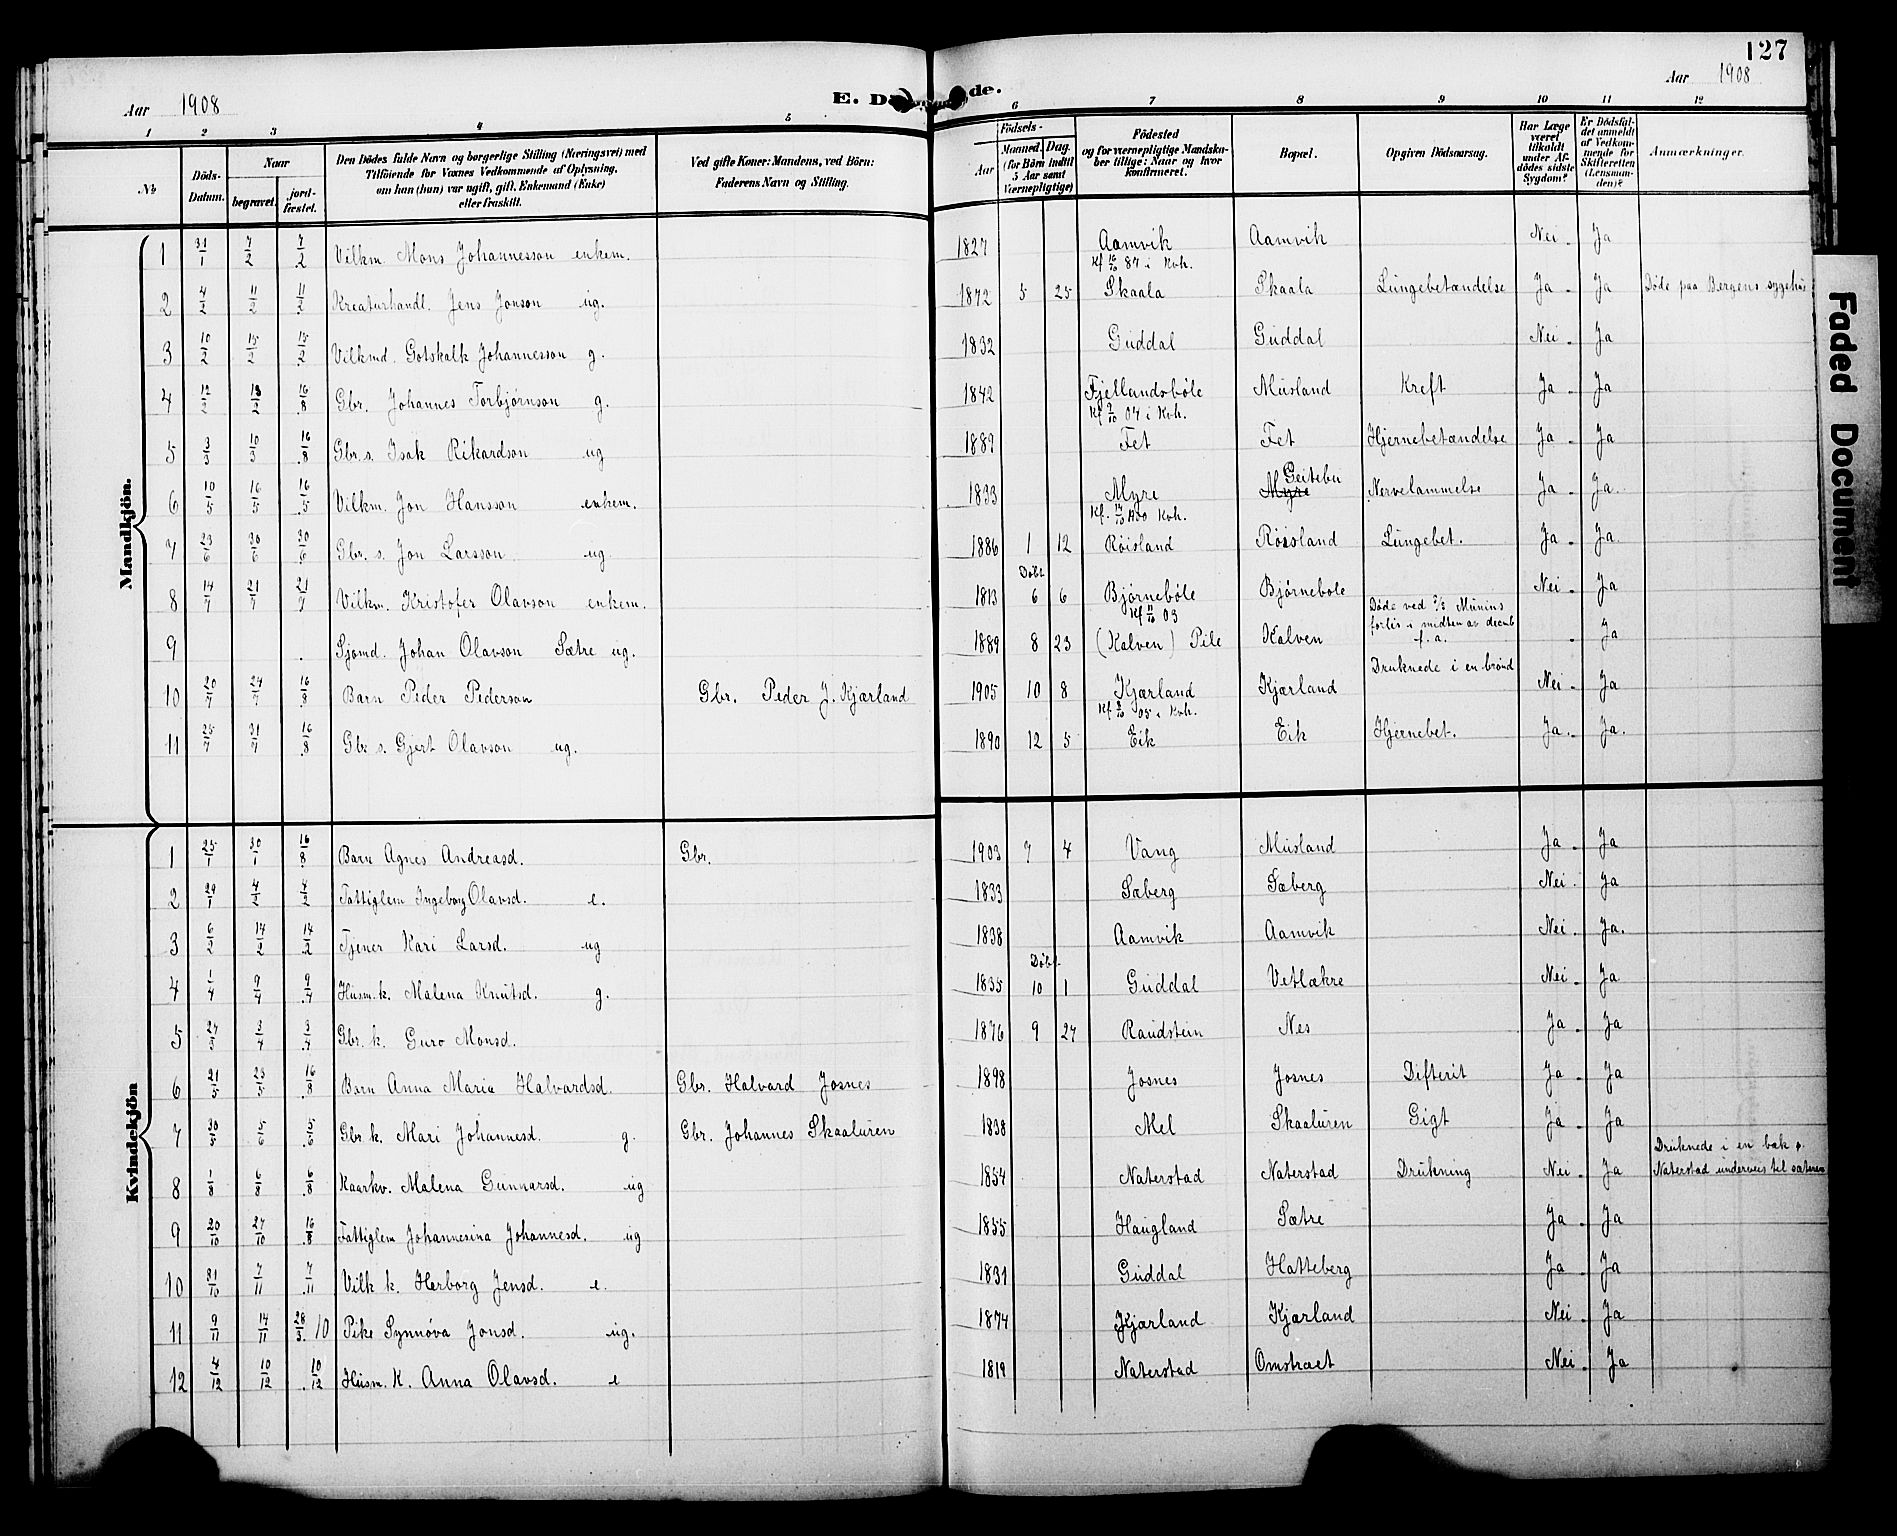 127
Aar 1908
E. D de.
Aar 1908
1 2 3 4 5 6 7 8 9 10 11 12
No
Döds-Datum.
Naar
begravet.
jord-fæstet.
Den Dödes fulde Navn og borgerlige Stilling (Næringsvei) med
Tilföiende for Voxnes Vedkommende af Oplysning,
om han (hun) var ugift, gift, Enkemand (Enke)
eller fraskilt.
Ved gifte Koner: Mandens, ved Börn:
Faderens Navn og Stilling.
Födsels-
Aar
Maaned. Dag.
(for Börn indtil
5 Aar samt
Værnepligtige)
Födested
og for værnepligtige Mandska-
ber tillige: Naar og hvor
konfirmeret.
Bopæl.
Opgiven Dödsaarsag.
Har Læge
været
tilkaldt
under Af-
dödes sidste
Sygdom?
Er Dödsfal-
det anmeldt
af Vedkom-
mende for
Skifteretten
(Lensman-
den)?
Anmærkninger.
Mandkjön.
1 31/1 7/2 7/2 Vilkm. Mons Johannesson enkem. 1827 Aamvik Aamvik Nei. Ja
Kf 16/10 87 i Kvh.
2 4/2 11/2 11/2 Kreaturhandl. Jens Jonson ug. 1872 5 25 Skaala Skaala Lungebetændelse Ja. Ja Døde paa Bergens sygehus
3 10/2 15/2 15/2 Vilkmd. Gotskalk Johannesson g. 1832 Guddal Guddal Nei. Ja
4 12/2 18/2 16/8 Gbr. Johannes Torbjørnson g. 1842 Fjellandsbøle Musland Kreft Ja. Ja
Kf 2/10 04 i Kvh.
5 3/3 10/3 16/8 Gbr. s. Isak Rikardson ug 1889 Fet Fet Hjernebetændelse Ja. Ja
6 10/5 16/5 16/5 Vilkm. Jon Hansson enkem. 1833 Myre Myre Geitebu Nervelammelse Ja. Ja.
Kf. 14/10 1900 Kvh.
7 23/6 30/6 30/6 Gbr. s. Jon Larsson ug 1886 1 12 Røisland Røisland Lungebet. Ja. Ja
Døbt
8 14/7 21/7 21/7 Vilkm. Kristofer Olavson enkem. 1813 6 6 Bjørnebøle Bjørnebole Nei. Ja
Kf 11/10 03
9 Sjømd. Johan Olavson Sætre ug. 1889 8 23 (Kalven) Pile Kalven Døde ved S/S Munins
forlis i midten av decemb
f. a. Ja
10 20/7 24/7 16/8 Barn Peder Pederson Gbr. Peder J. Kjærland 1905 10 8 Kjærland Kjærland Druknede i en brønd Nei. Ja
Kf 8/10 05 i Kvh.
11 25/7 31/7 16/8 Gbr s. Gjert Olavson ug. 1890 12 5 Eik Eik Hjernebet. Ja. Ja.
Kvindekjön
1 25/1 30/1 16/8 Barn Agnes Andreasd. Gbr. 1903 7 4 Vang Musland Ja. Ja
2 29/1 4/2 4/2 Fattiglem Ingeborg Olavsd. e. 1833 Sæberg Sæberg Nei. Ja
3 6/2 14/2 14/2 Tjener Kari Larsd. ug 1838 Aamvik Aamvik Nei. Ja.
Døbt
4 1/4 9/4 9/4 Husm. k. Malena Knutsd. g. 1835 10 1 Guddal Vetlækre Nei. Ja
5 27/3 3/4 3/4 Gbr. k. Guro Monsd. 1876 9 27 Raudstein Nes Ja. Ja
6 21/5 25/5 16/8 Barn Anna Maria Halvardsd. Gbr. Halvard Josnes 1898 Josnes Josnes Difterit Ja. Ja
7 30/5 5/6 5/6 Gbr. k. Mari Johannesd. g. Gbr. Johannes Skaaluren 1838 Mel Skaaluren Gigt Ja. Ja
8 1/8 6/8 6/8 Kaarkv. Malena Gunnarsd. ug 1854 Naterstad Naterstad Drukning Nei. Ja Druknede i en bæk p.
Naterstad underveis til sæteren
9 20/10 27/10 16/8 Fattiglem Johannesina Johannesd. ug 1855 Haugland Sætre Ja. Ja
10 31/10 7/11 7/11 Vilk k. Herborg Jensd. e. 1831 Guddal Hatteberg Ja. Ja
11 9/11 14/11 28/3 10 Pike Synnøva Jonsd. ug. 1874 Kjærland Kjærland Nei. Ja
12 4/12 10/12 10/12 Husm. K. Anna Olavsd. e 1819 Naterstad Omstraet Nei. Ja
Faded Document